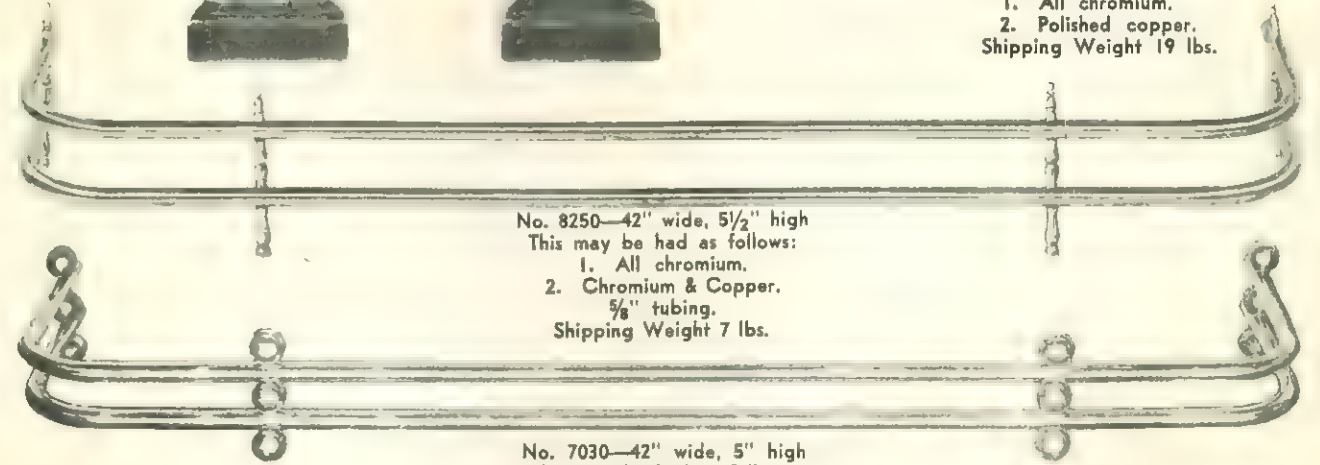 1. All chromium.
2. Polished copper.
Shipping Weight 19 lbs.
No. 8250—42" wide, 5½" high
This may be had as follows:
1. All chromium.
2. Chromium & Copper.
⅝" tubing.
Shipping Weight 7 lbs.
No. 7030—42" wide, 5" high